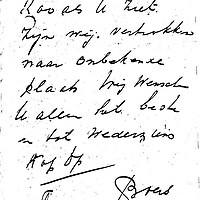 Zoo als U ziet
Zijn wij vertrokken
naar onbekende
plaats wij wensch
U allen het beste
en tot wederziens